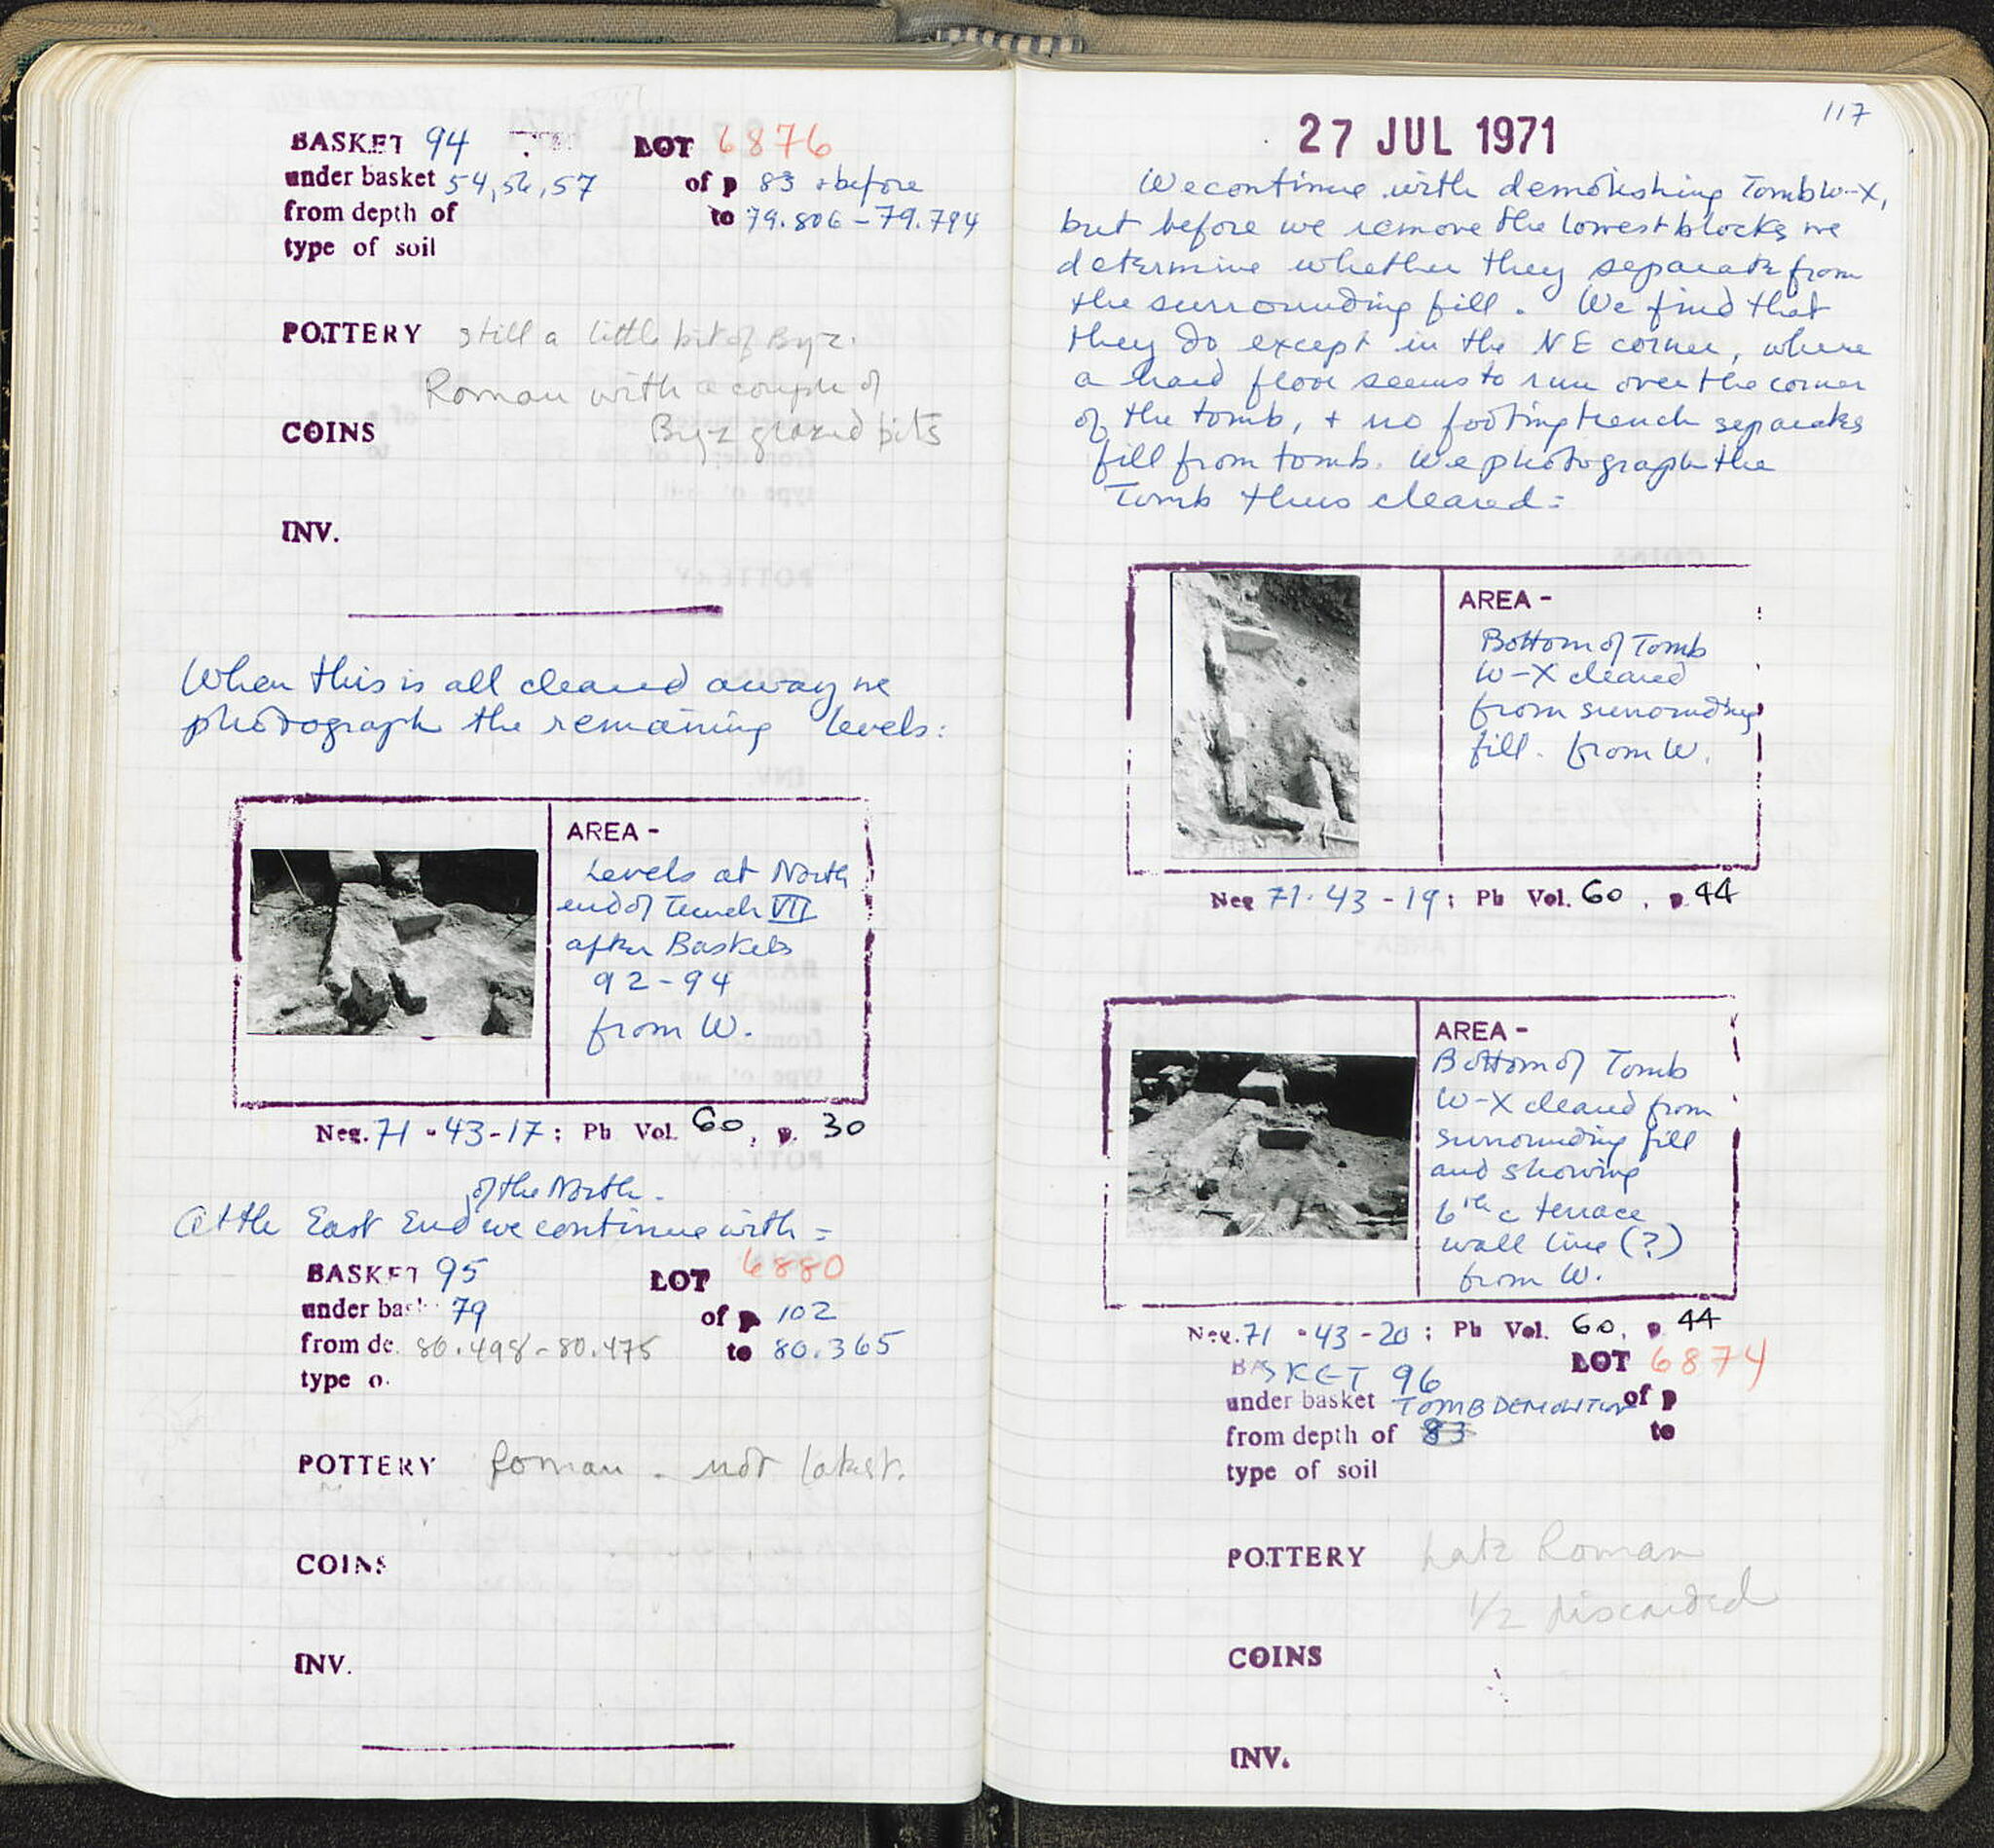 BASKET 94 LOT 6876
under basket 54, 56, 57 of p 83 + before
from depth of to 79.806 - 79.794
type of soil
POTTERY still a little bit of Byz.
Roman with a couple of
COINS Byz glazed bits
INV.
When this is all cleared away we
photograph the remaining levels:
AREA -
Levels at North
end of Trench VII
after Baskets
92-94
from W.
Neg. 71-43-17; Ph Vol. 60, p. 30
of the North.
At the East End we continue with =
BASKET 95 LOT 6880
under bask 79 of p 102
from de. 80.498 - 80.475 to 80.365
type o.
POTTERY Roman. not latest.
COINS
INV.
117
27 JUL 1971
We continue with demolishing Tomb W-X,
but before we remove the lowest blocks we
determine whether they separate from
the surrounding fill. We find that
they do except in the NE corner, where
a hard floor seems to run over the corner
of the tomb, + no footing trench separates
fill from tomb. We photograph the
Tomb thus cleared=
AREA -
Bottom of Tomb
W-X cleared
from surrounding
fill. from W.
Neg 71-43-19; Ph Vol. 60, p. 44
AREA -
Bottom of Tomb
W-X cleared from
surrounding fill
and showing
6th c terrace
wall line (?)
from W.
Neg. 71-43-20; Ph Vol. 60, p. 44
BASKET 96 LOT 6874
under basket TOMB DEMOLITION of p
from depth of 83 to
type of soil
POTTERY Late Roman
1/2 discarded
COINS
INV.